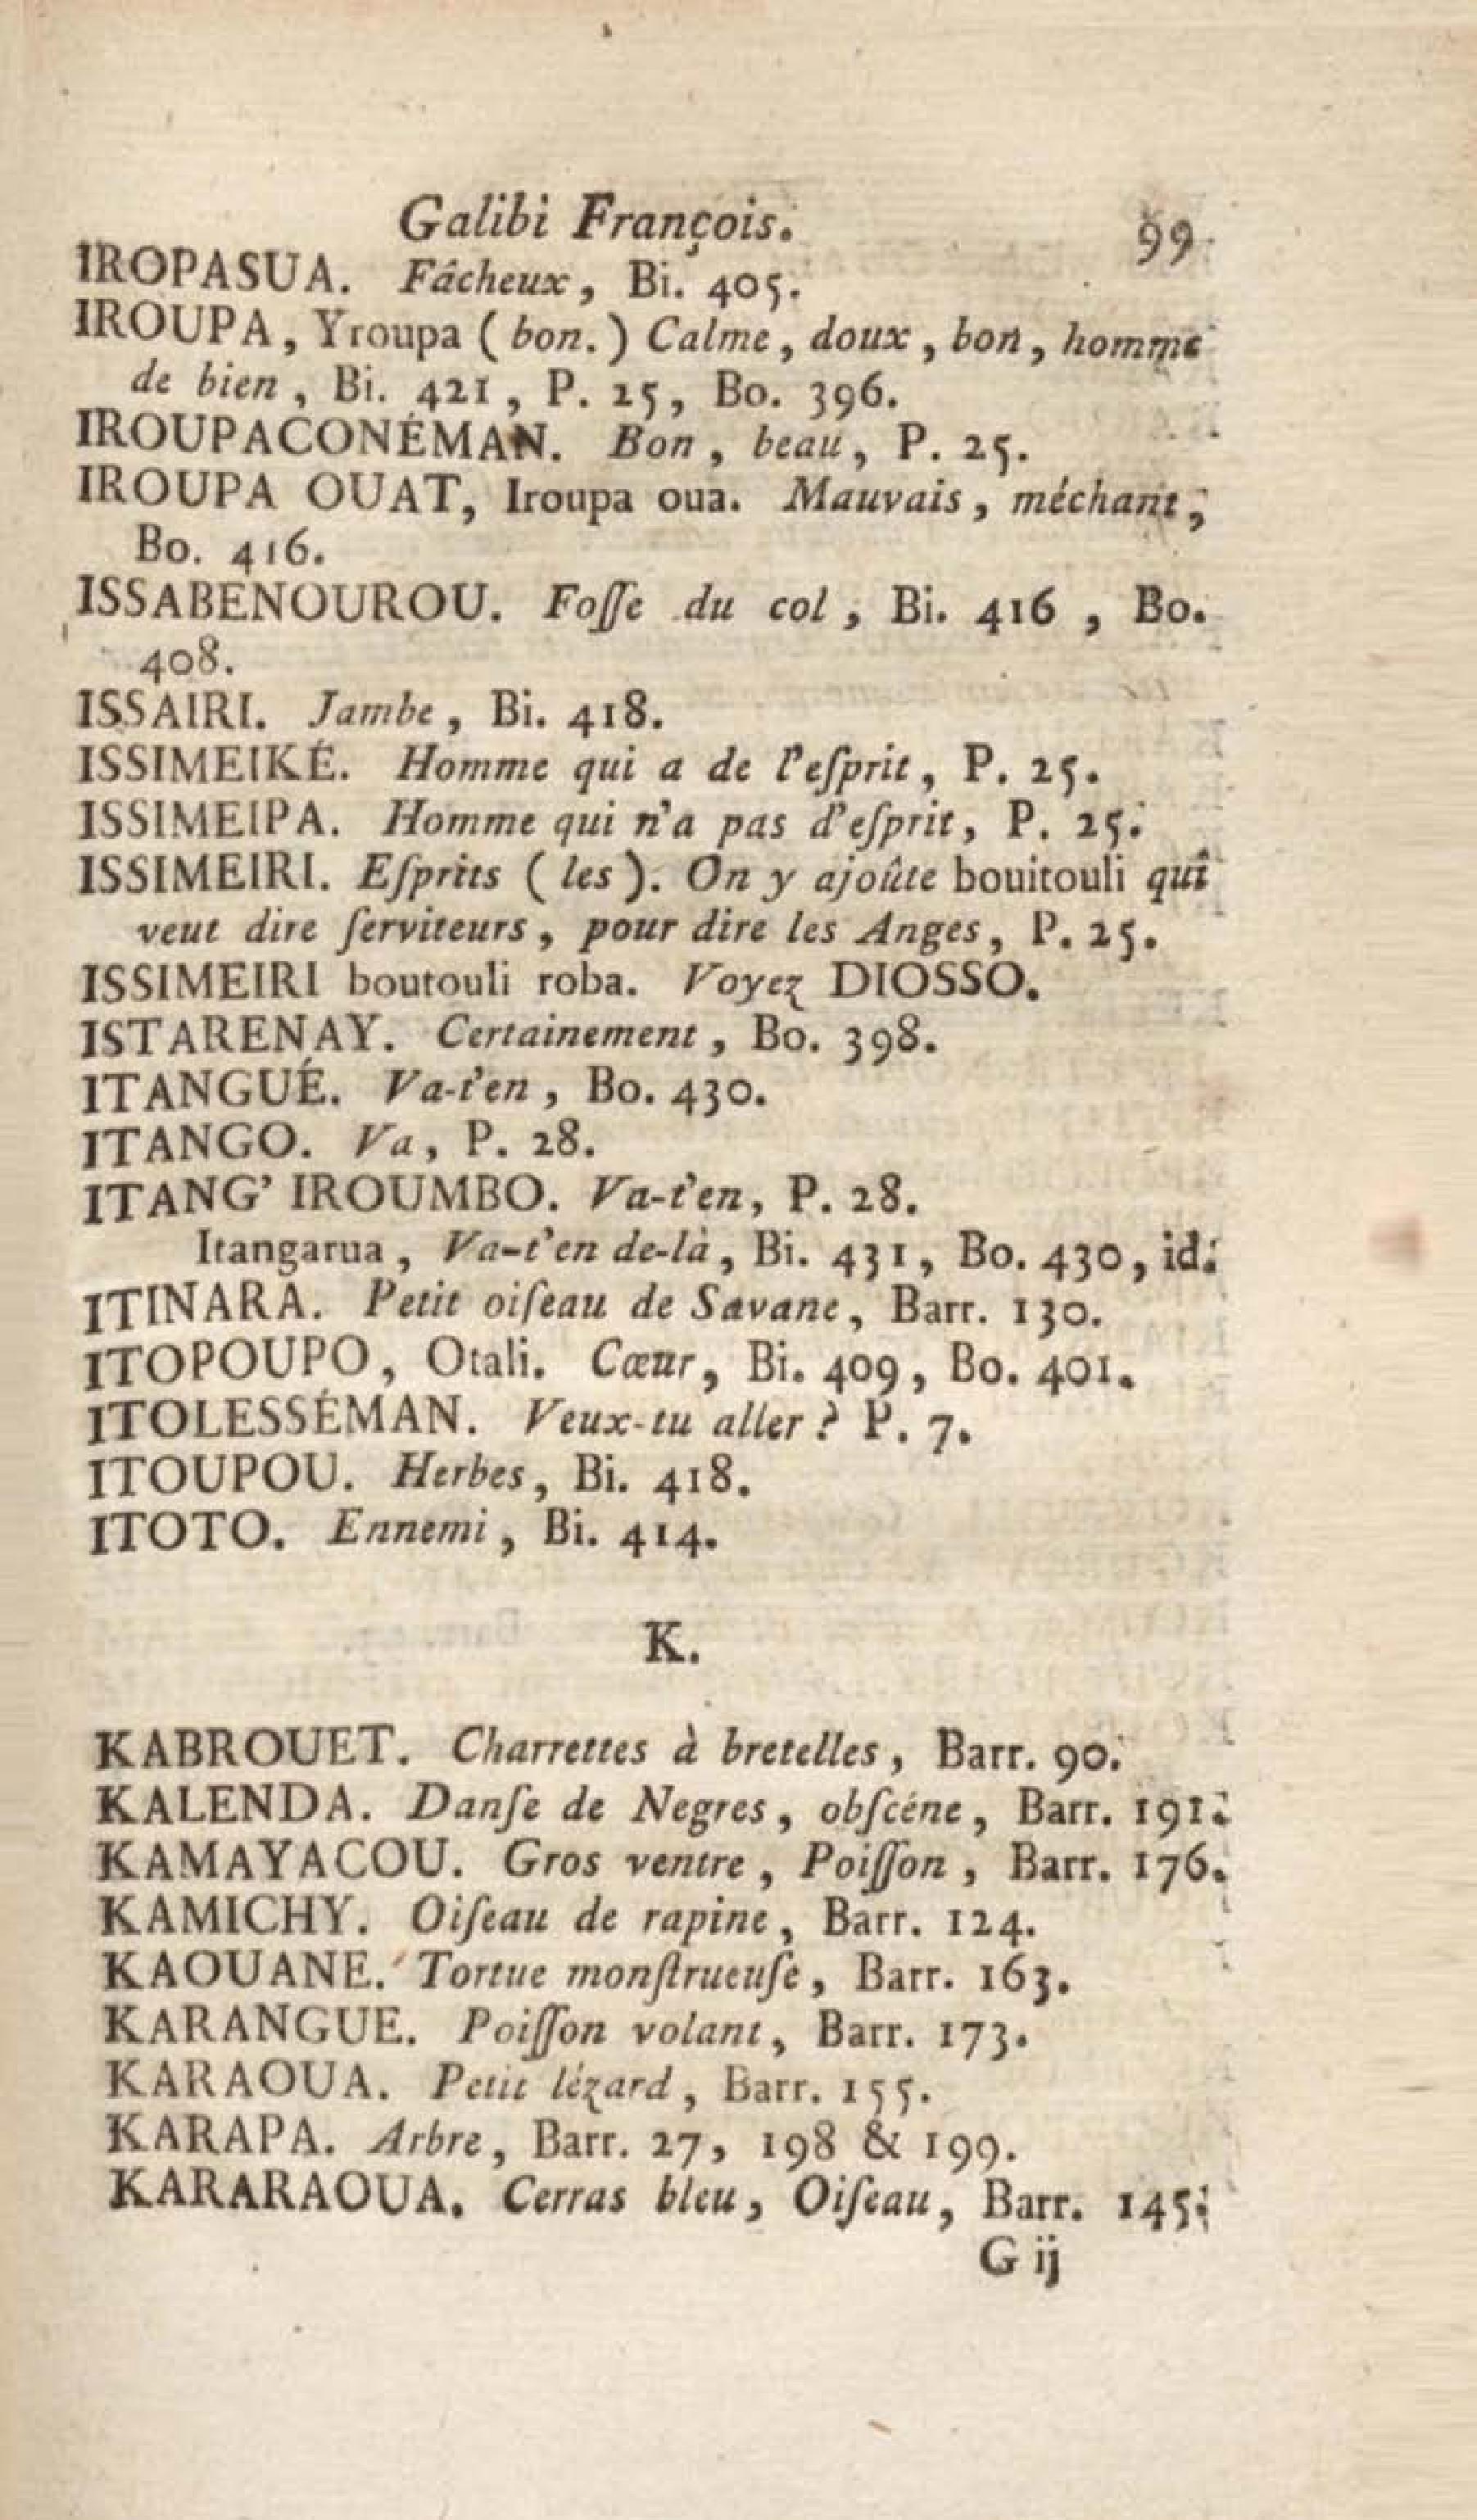 Galibi François. 99
IROPASUA. Fâcheux, Bi. 405.
IROUPA, Yroupa (bon.) Calme, doux, bon, homme
de bien, Bi. 421, P. 25, Bo. 396.
IROUPACONÉMAN. Bon, beau, P. 25.
IROUPA OUAT, Iroupa oua. Mauvais, méchant,
Bo. 416.
ISSABENOUROU. Foſſe du col, Bi. 416, Bo.
408.
ISSAIRI. Jambe, Bi. 418.
ISSIMEIKÉ. Homme qui a de l'eſprit, P. 25.
ISSIMEIPA. Homme qui n'a pas d'eſprit, P. 25.
ISSIMEIRI. Eſprits (les). On y ajoûte bouitouli qui
veut dire ſerviteurs, pour dire les Anges, P. 25.
ISSIMEIRI boutouli roba. Voyez DIOSSO.
ISTARENAY. Certainement, Bo. 398.
ITANGUÉ. Va-t'en, Bo. 430.
ITANGO. Va, P. 28.
ITANG' IROUMBO. Va-t'en, P. 28.
Itangarua, Va-t'en de-là, Bi. 431, Bo. 430, id.
ITINARA. Petit oiſeau de Savane, Barr. 130.
ITOPOUPO, Otali. Cœur, Bi. 409, Bo. 401.
ITOLESSÉMAN. Veux-tu aller? P. 7.
ITOUPOU. Herbes, Bi. 418.
ITOTO. Ennemi, Bi. 414.
K.
KABROUET. Charrettes à bretelles, Barr. 90.
KALENDA. Danſe de Negres, obſcéne, Barr. 191.
KAMAYACOU. Gros ventre, Poiſſon, Barr. 176.
KAMICHY. Oiſeau de rapine, Barr. 124.
KAOUANE. Tortue monſtrueuſe, Barr. 163.
KARANGUE. Poiſſon volant, Barr. 173.
KARAOUA. Petit lézard, Barr. 155.
KARAPA. Arbre, Barr. 27, 198 & 199.
KARARAOUA. Cerras bleu, Oiſeau, Barr. 145.
G ij